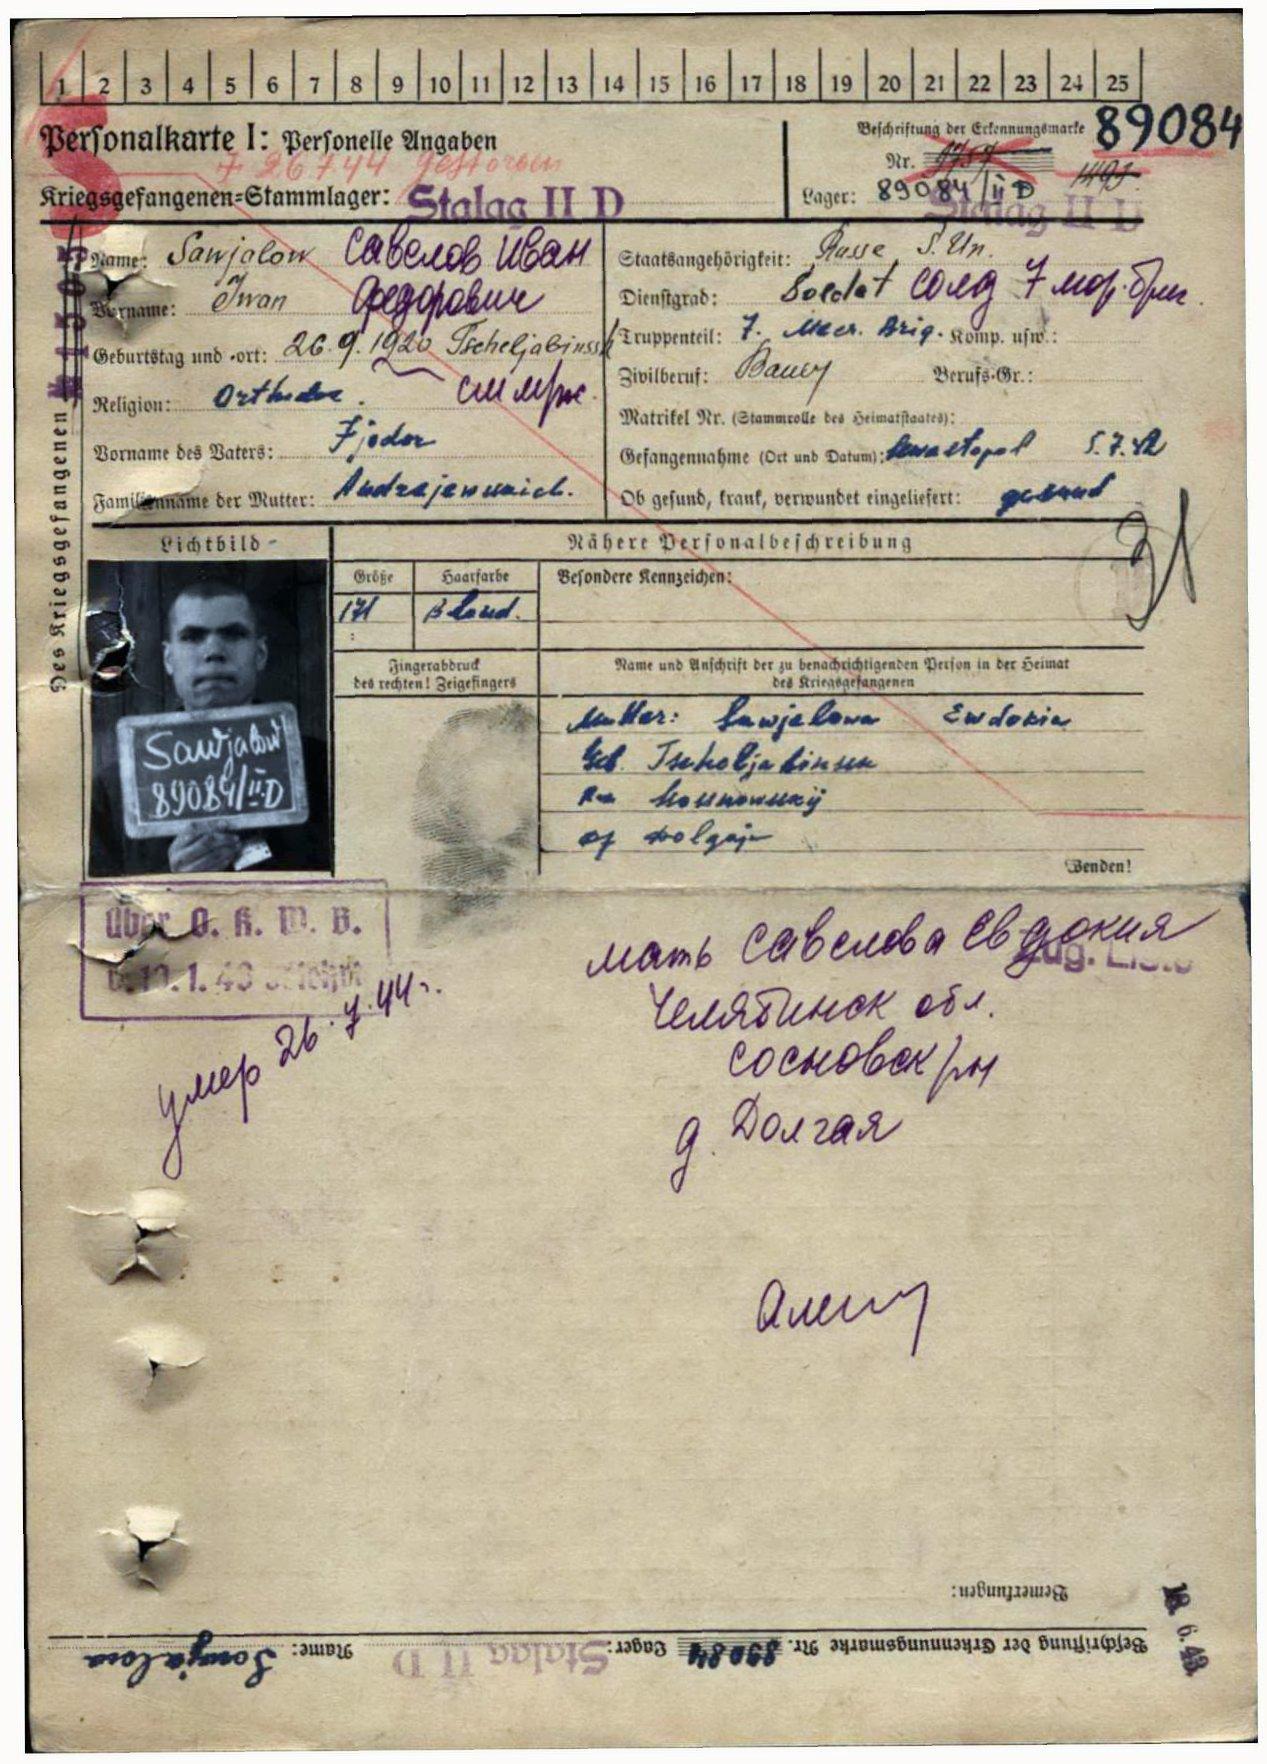 1 2 3 4 5 6 7 8 9 10 11 12 13 14 15 16 17 18 19 20 21 22 23 24 25
Personalkarte I: Personelle Angaben
Beschriftung der Erkennungsmarke 89084
† 26.7.44 gestorben
Nr.
Kriegsgefangenen-Stammlager: Stalag II D
Lager: 89084/II D
Stalag II D
Des Kriegsgefangenen
Name: Sawjalow Савелов Иван
Vorname: Iwan Федорович
Geburtstag und -ort: 26.9.1920 Tscheljabinssk
Religion: Orthodox.
Vorname des Vaters: Fjodor
Familienname der Mutter:
Staatsangehörigkeit: Russe S. Un.
Dienstgrad: Soldat солд 7 мор. бриг.
Truppenteil: 7. Meer. Brig. Komp. usw.:
Zivilberuf: Bauer Berufs-Gr.:
Matrikel Nr. (Stammrolle des Heimatstaates):
Gefangennahme (Ort und Datum): Sewastopol 5.7.42
Ob gesund, krank, verwundet eingeliefert: gesund
Lichtbild
Nähere Personalbeschreibung
Größe Haarfarbe Besondere Kennzeichen:
171 Blond.
Fingerabdruck
des rechten! Zeigefingers
Name und Anschrift der zu benachrichtigenden Person in der Heimat
des Kriegsgefangenen
Mutter: Sawjelowa Ewdokia
Geb. Tscheljabinssk
Ra. Sosnowskij
Dolgaja
Sawjalow
89084/II D
Wenden!
über O. K. W. B.
мать Савелова Евдокия
Zug. Liste
Челябинск обл.
сосновск р/н
д. Долгая
умер 26.7.44г.
Bemerkungen:
18. 6. 43
Beschriftung der Erkennungsmarke Nr. 89084 Lager: Stalag II D Name: Sawjalow